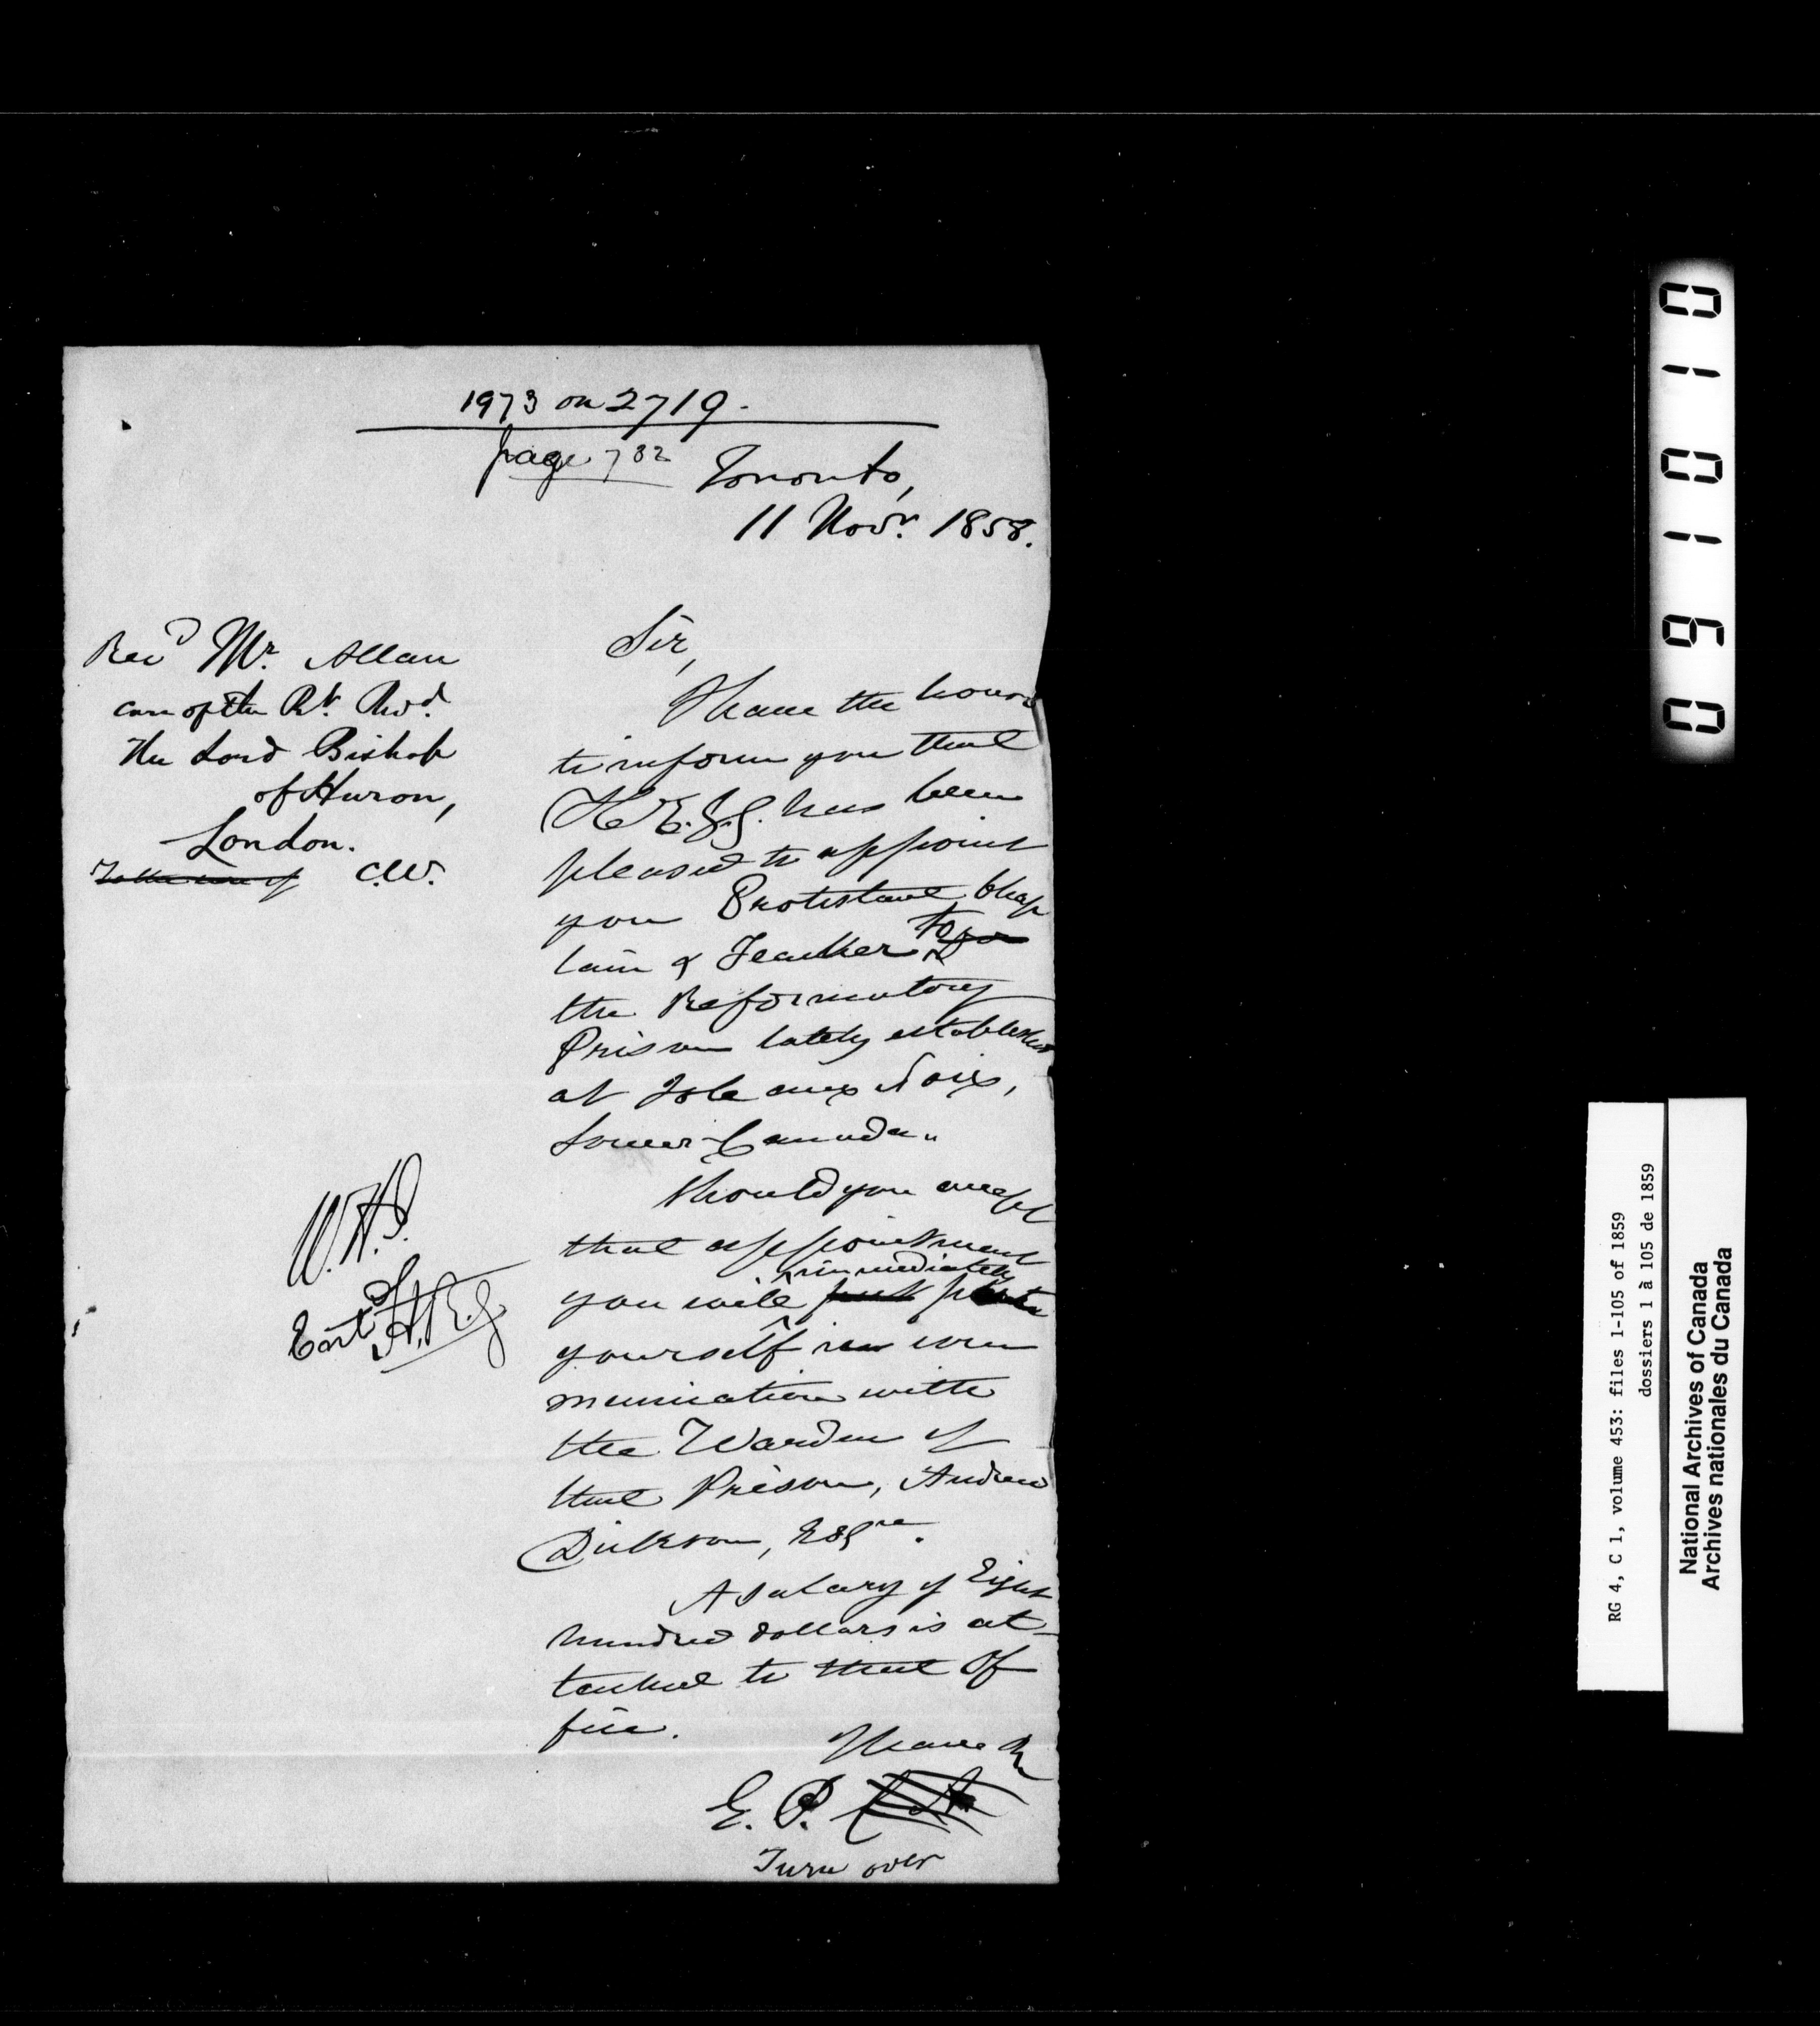 1973 on 2719.
page 732
Toronto,
11 Novr. 1858.
Revd Mr. Allan
care of the Rt. Revd.
The Lord Bishop
of Huron,
London.
To the care of C.W.
Sir,
I have the honor
to inform you that
H. E. G. G. has been
pleased to appoint
you Protestant Chap
lain & Teacher to for
the Reformatory
Prison lately established
at Isle aux Noix,
Lower-Canada.
Should you accept
that appointment
immediately
you will put
yourself in com
munication with
the Warden of
that Prison, Andrew
Dickson, Esqre.
A salary of Eight
hundred dollars is at-
tached to that Of
fice.
I have &c
E. P.
Turn over
W.H.J.
Entd
H.R.G.
0 9 1 0 1 0
RG 4, C 1, volume 453: files 1-105 of 1859
dossiers 1 à 105 de 1859
National Archives of Canada
Archives nationales du Canada